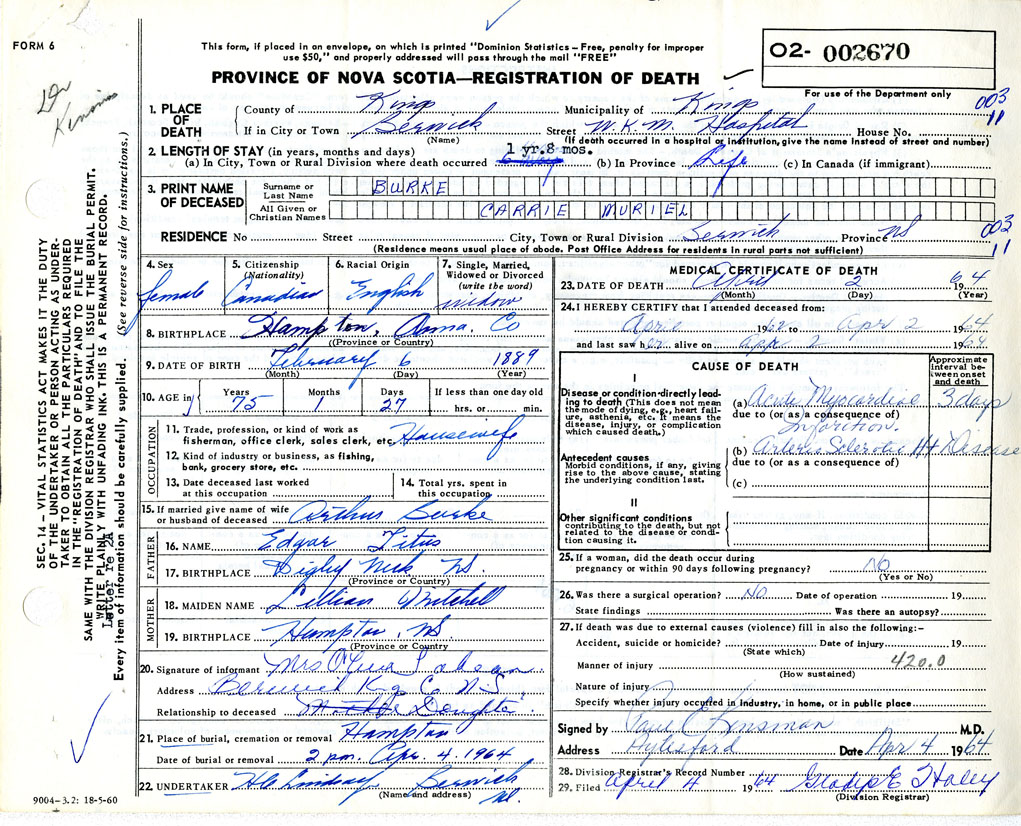 FORM 6
This form, if placed in an envelope, on which is printed "Dominion Statistics – Free, penalty for improper
use $50," and properly addressed will pass through the mail "FREE"
PROVINCE OF NOVA SCOTIA—REGISTRATION OF DEATH
02- 002670
For use of the Department only
003
11
Dr
SEC. 14 – VITAL STATISTICS ACT MAKES IT THE DUTY
OF THE UNDERTAKER OR PERSON ACTING AS UNDER-
TAKER TO OBTAIN ALL THE PARTICULARS REQUIRED
IN THE "REGISTRATION OF DEATH" AND TO FILE THE
SAME WITH THE DIVISION REGISTRAR WHO SHALL ISSUE THE BURIAL PERMIT.
WRITE PLAINLY WITH UNFADING INK. THIS IS A PERMANENT RECORD.
Letter re 2A
Every item of information should be carefully supplied. (See reverse side for instructions.)
1. PLACE OF DEATH
County of Kings Municipality of Kings
If in City or Town Berwick Street W.K.M. Hospital House No.
(Name) (If death occurred in a hospital or institution, give name instead of street and number)
2. LENGTH OF STAY (in years, months and days) 1 yr.8 mos.
(a) In City, Town or Rural Division where death occurred (b) In Province Life (c) In Canada (if immigrant)
3. PRINT NAME OF DECEASED
Surname or Last Name BURKE
All Given or Christian Names CARRIE MURIEL
RESIDENCE No Street City, Town or Rural Division Berwick Province NS
003
11
(Residence means usual place of abode. Post Office Address for residents in rural parts not sufficient)
4. Sex female
5. Citizenship (Nationality) Canadian
6. Racial Origin English
7. Single, Married, Widowed or Divorced (write the word) widow
8. BIRTHPLACE Hampton, Anna. Co
(Province or Country)
9. DATE OF BIRTH February 6 1889
(Month) (Day) (Year)
10. AGE in Years 75 Months 1 Days 27 If less than one day old hrs. or min.
OCCUPATION
11. Trade, profession, or kind of work as fisherman, office clerk, sales clerk, etc. Housewife
12. Kind of industry or business, as fishing, bank, grocery store, etc.
13. Date deceased last worked at this occupation
14. Total yrs. spent in this occupation
15. If married give name of wife or husband of deceased Arthur Burke
FATHER
16. NAME Edgar Titus
17. BIRTHPLACE Digby Neck NS
(Province or Country)
MOTHER
18. MAIDEN NAME Lillian Mitchell
19. BIRTHPLACE Hampton, NS
(Province or Country
20. Signature of informant Mrs
Address Berwick N.S.
Relationship to deceased Daughter
21. Place of burial, cremation or removal Hampton
Date of burial or removal 2 pm. Apr. 4, 1964
22. UNDERTAKER Lindsay Berwick
(Name and address)
9004–3.2: 18-5-60
MEDICAL CERTIFICATE OF DEATH
23. DATE OF DEATH April 2 1964
(Month) (Day) (Year)
24. I HEREBY CERTIFY that I attended deceased from:
April 1962 to Apr 2 1964
and last saw her alive on Apr 2 1964
CAUSE OF DEATH
Approximate interval between onset and death
I
Disease or condition directly leading to death (This does not mean the mode of dying, e.g., heart failure, asthenia, etc. It means the disease, injury, or complication which caused death.)
(a) Acute Myocardial 3 days
due to (or as a consequence of)
Infarction.
Antecedent causes
Morbid conditions, if any, giving rise to the above cause, stating the underlying condition last.
(b) Arterio Sclerotic Ht Disease
due to (or as a consequence of)
(c)
II
Other significant conditions contributing to the death, but not related to the disease or condition causing it.
25. If a woman, did the death occur during pregnancy or within 90 days following pregnancy? No
(Yes or No)
26. Was there a surgical operation? NO Date of operation 19
State findings Was there an autopsy?
27. If death was due to external causes (violence) fill in also the following:–
Accident, suicide or homicide? Date of injury 19
(State which)
Manner of injury 420.0
(How sustained)
Nature of injury
Specify whether injury occurred in industry, in home, or in public place
Signed by Paul E Kinsman M.D.
Address Aylesford Date Apr 4 1964
28. Division Registrar's Record Number
29. Filed April 4 1964 Gladys E Haley
(Division Registrar)